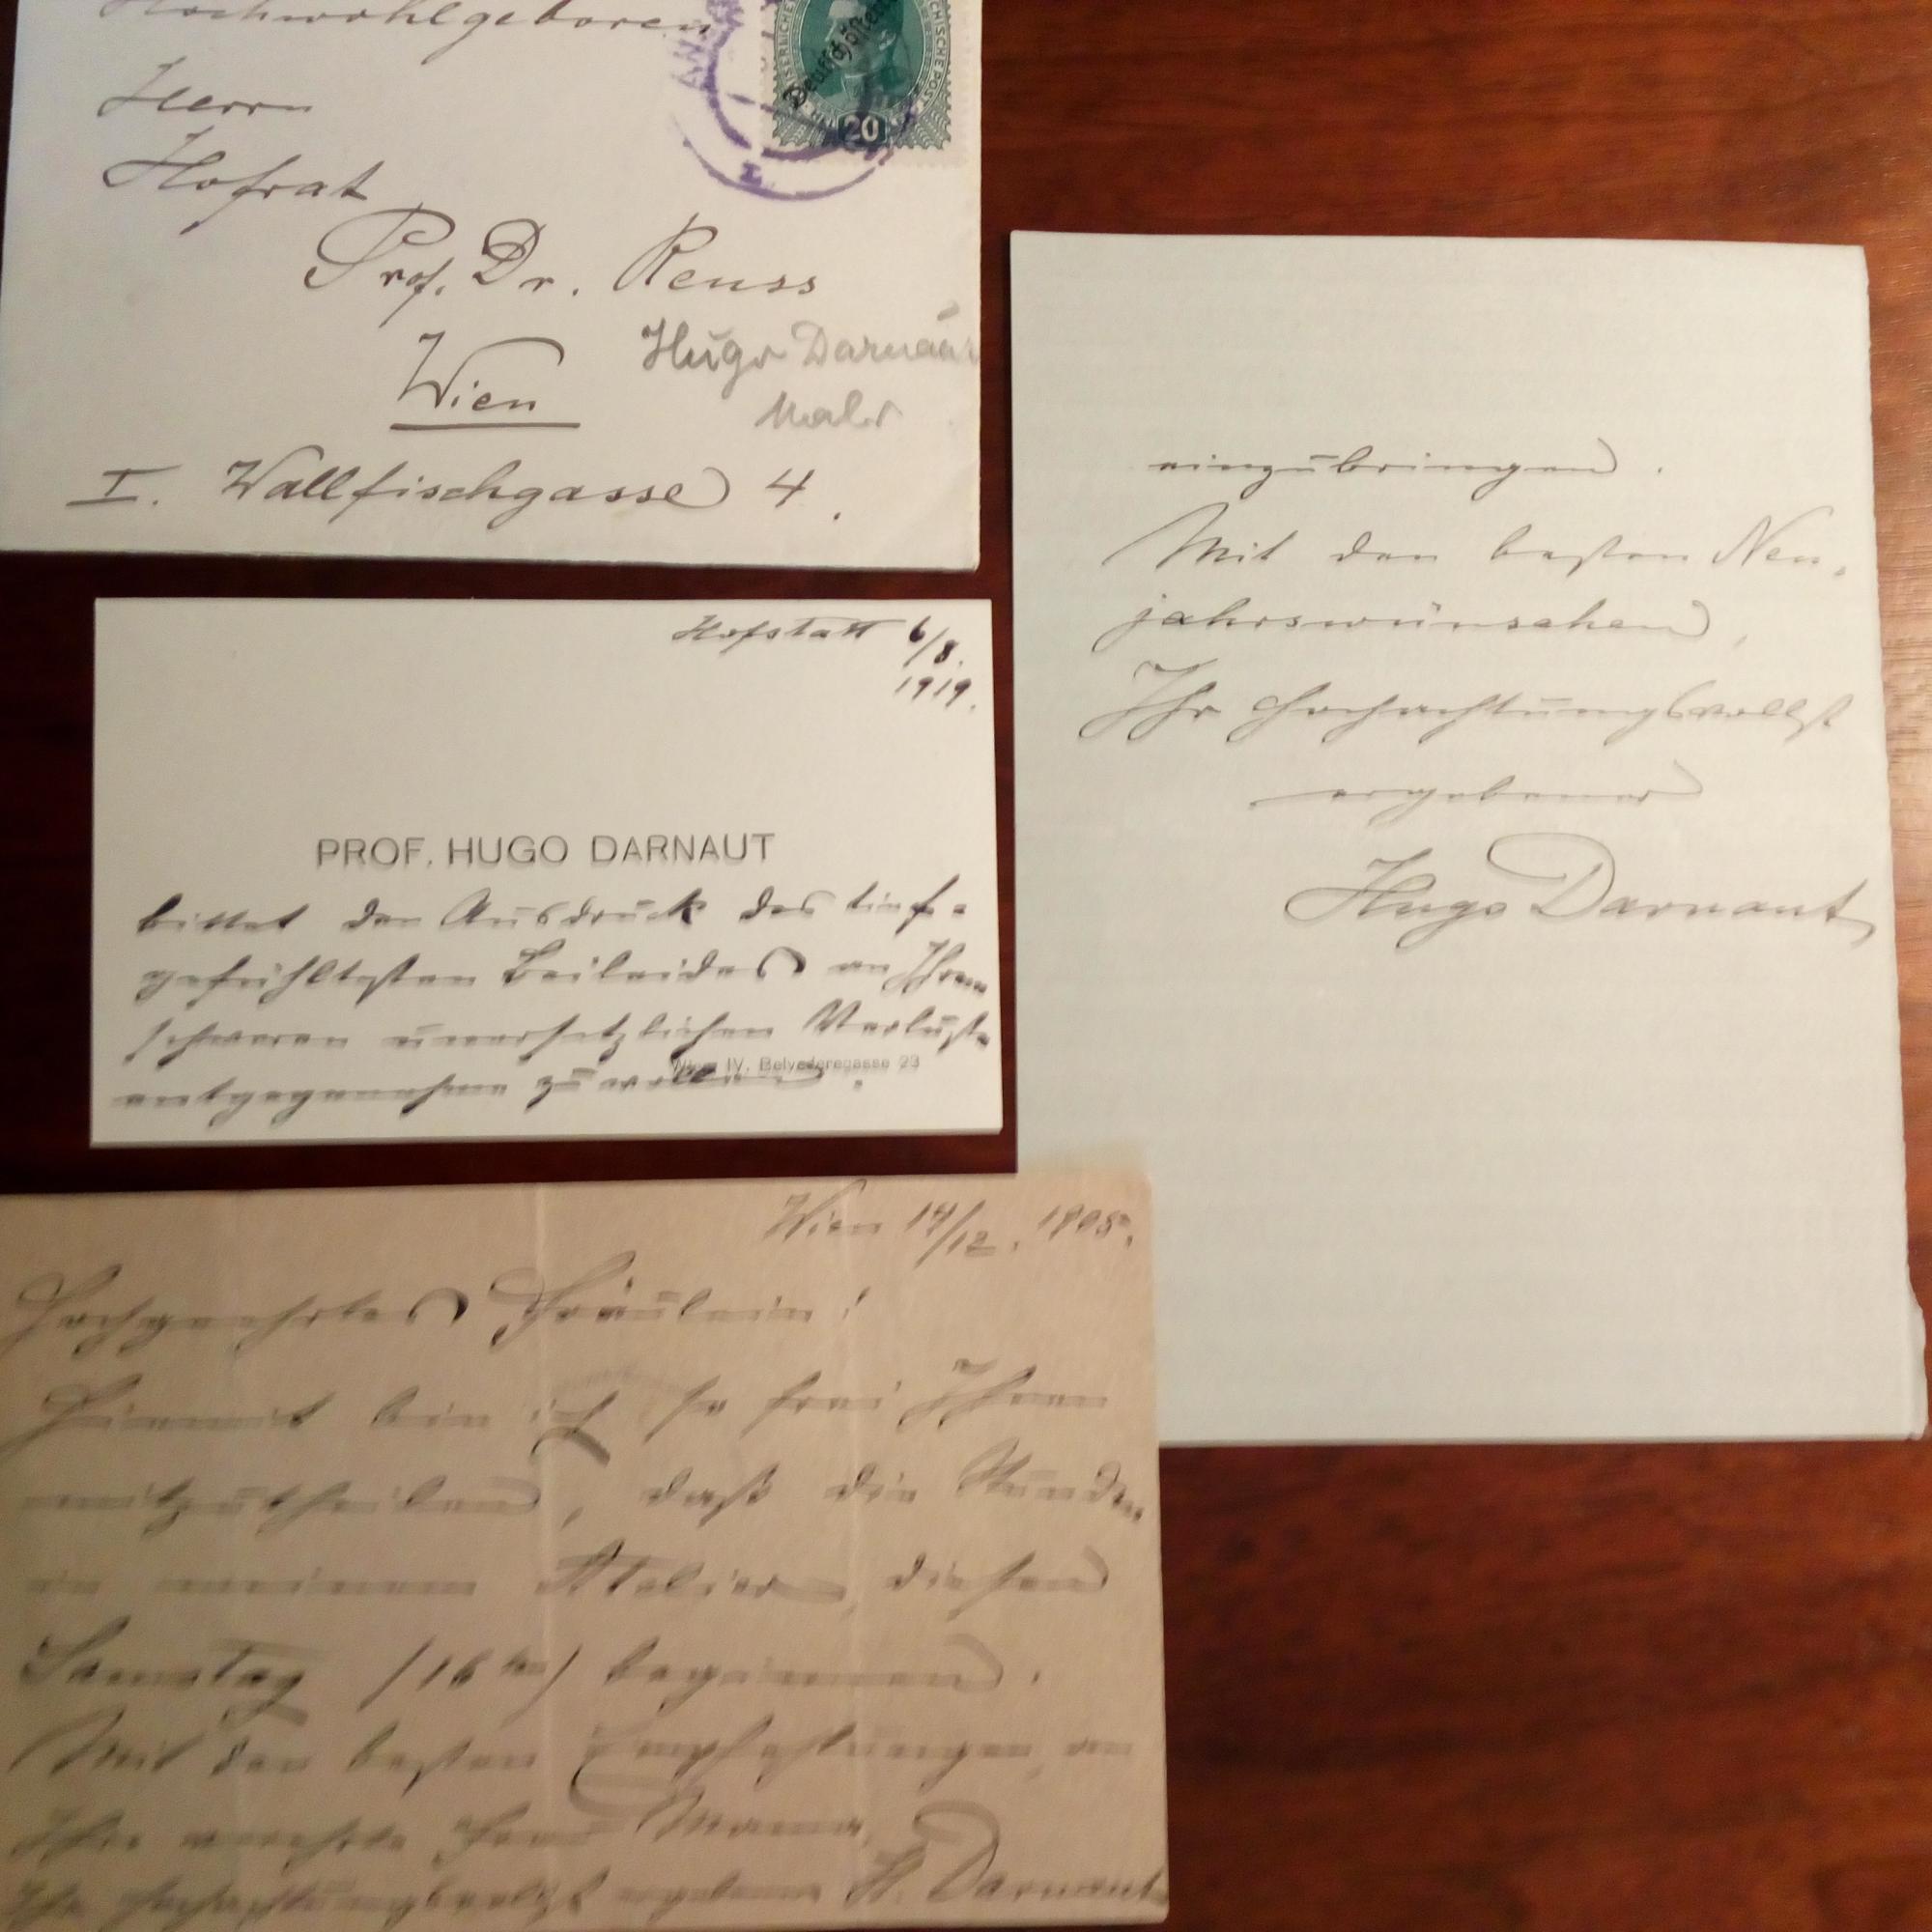 Hochwohlgeboren
Herrn
Hofrat
Prof. Dr. Reuss
Wien
Hugo Darnaut
Maler
I. Wallfischgasse 4.
Deutschösterreich
20
Hofstatt 6/8.
1919.
PROF. HUGO DARNAUT
bittet den Ausdruck des tief-
gefühltesten Beileides an Ihrem
schweren unersetzlichen Verluste
Wien IV, Belvederegasse 23
entgegennehmen zu wollen.
einzubringen.
Mit den besten Neu-
jahrswünschen,
Ihr hochachtungsvollst
ergebener
Hugo Darnaut
Wien 14/12. 1905.
Hochgeehrtes Fräulein!
Hiemit bin ich so frei Ihnen
mitzutheilen, daß die Stunden
in meinem Atelier diesen
Samstag (16ten) beginnen.
Mit den besten Empfehlungen an
Ihre verehrte Frau Mama,
Ihr hochachtungsvollst ergebener H. Darnaut